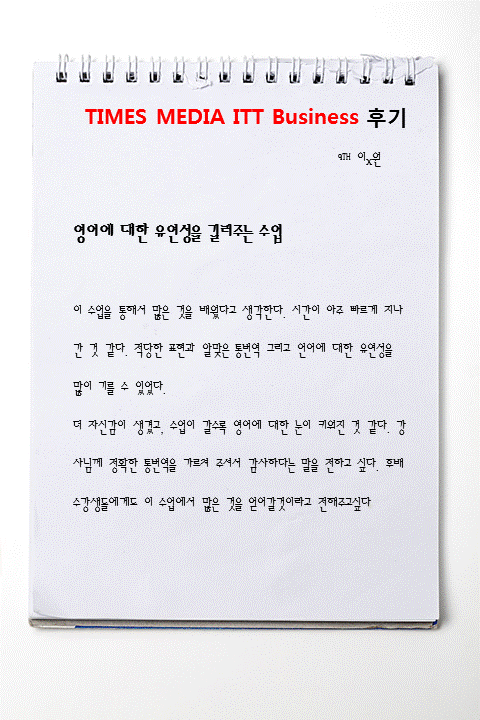 TIMES MEDIA ITT Business 후기
9TH 이x원
영어에 대한 유연성을 길러주는 수업
이 수업을 통해서 많은 것을 배웠다고 생각한다. 시간이 아주 빠르게 지나
간 것 같다. 적당한 표현과 알맞은 통번역 그리고 언어에 대한 유연성을
많이 기를 수 있었다.
더 자신감이 생겼고, 수업이 갈수록 영어에 대한 눈이 키워진 것 같다. 강
사님께 정확한 통번역을 가르쳐 주셔서 감사하다는 말을 전하고 싶다. 후배
수강생들에게도 이 수업에서 많은 것을 얻어갈것이라고 전해주고싶다